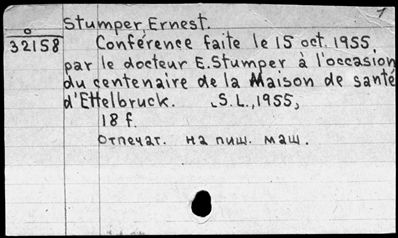 1
Stumper, Ernest.
0
32158
Conférence faite le 15 oct. 1955
par le docteur E. Stumper à l'occasion
du centenaire de la Maison de santé
d'Ettelbruck. S.L., 1955,
18 f.
Отпечат. на пиш. маш.